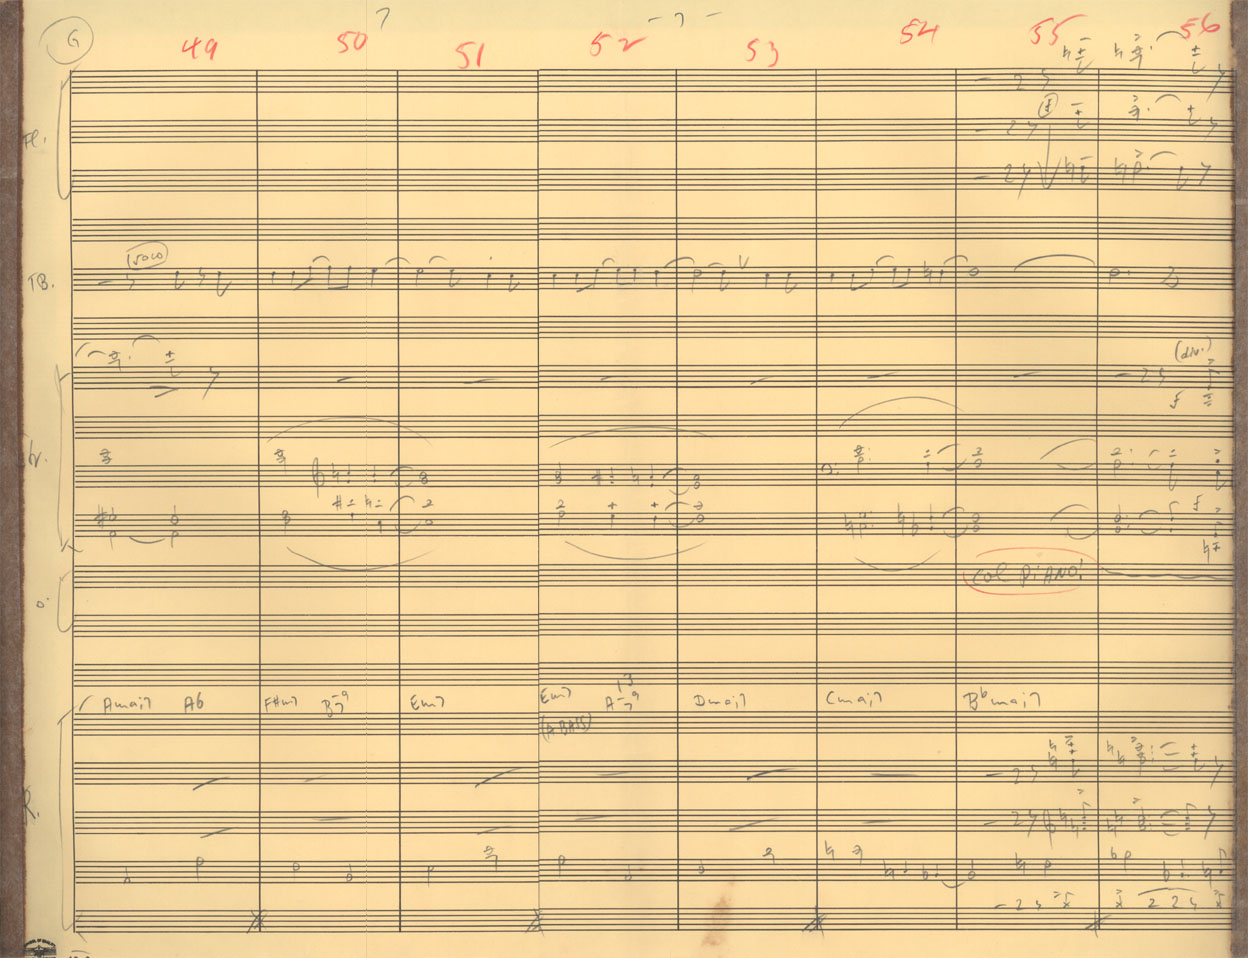 7 - 7 -
G
49 50 51 52 53 54 55 56
Fl.
(SOLO)
TB.
(div.)
f
f
COL PIANO!
Amaj7 A6 F#m7 B-9 7 Em7 Em7 13 A-9 7 Dmaj7 Cmaj7 Bbmaj7
(A BASS)
R.